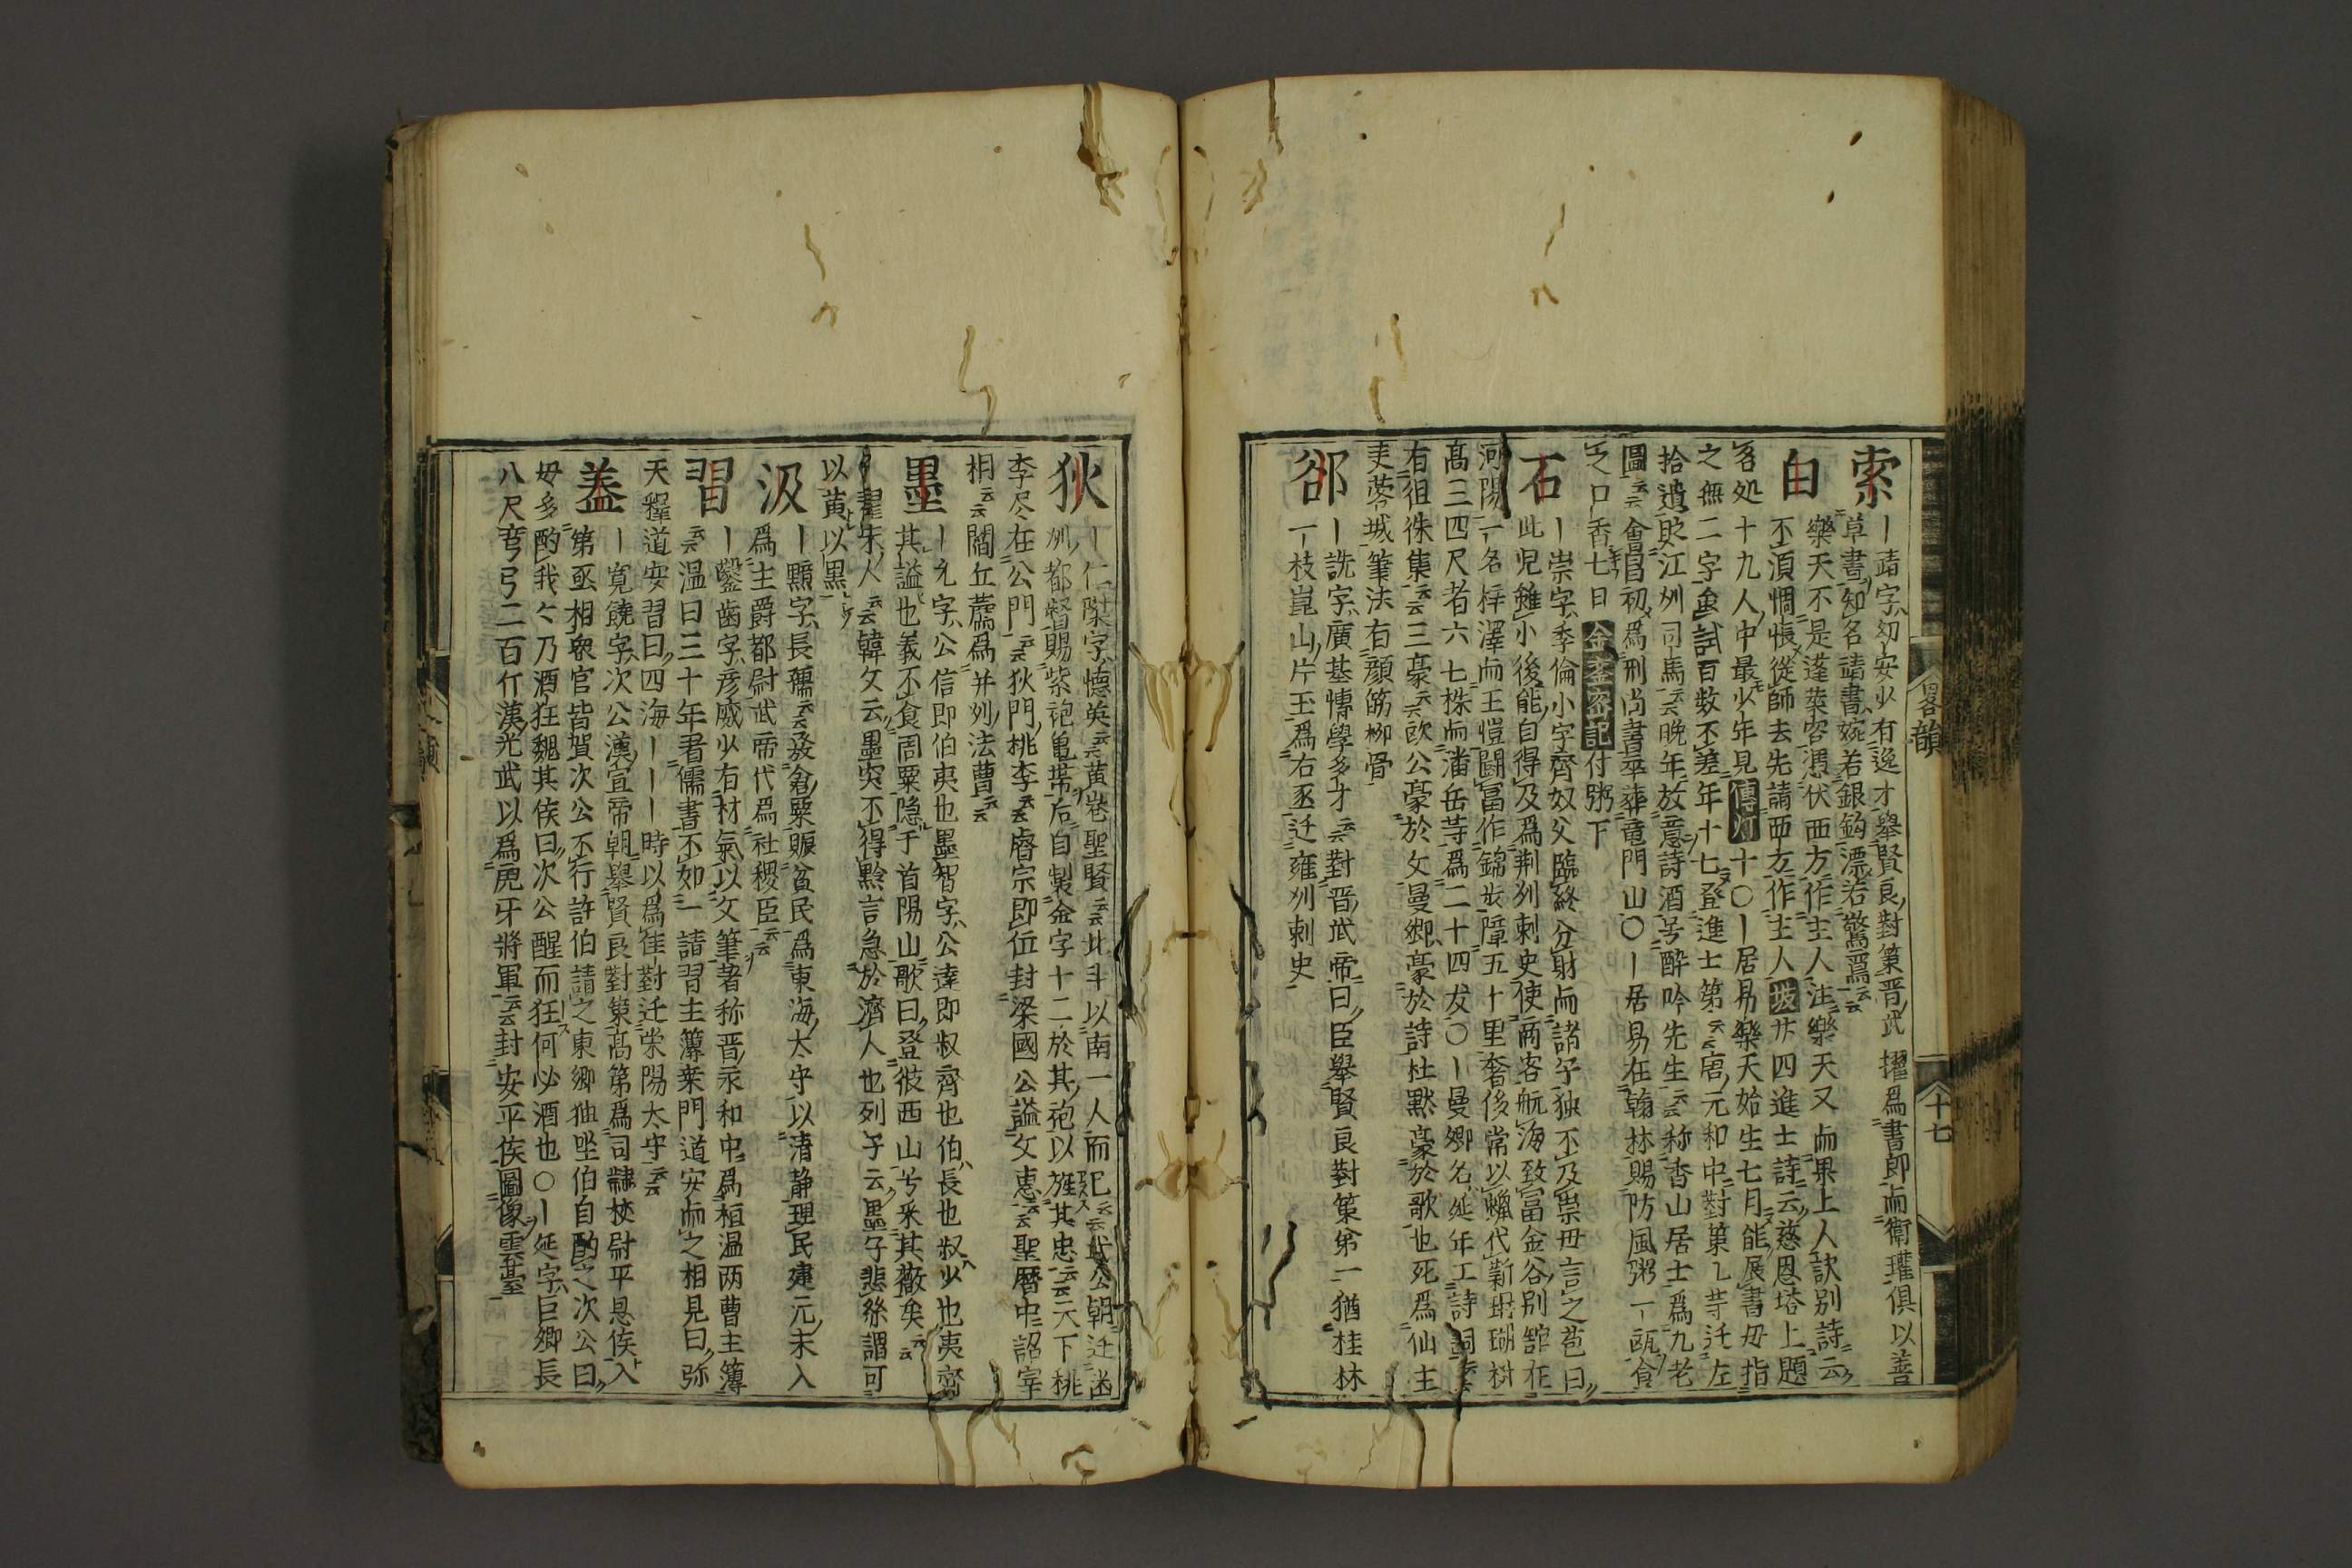 索 ｜靖字幼安少有逸才擧賢良對策晋武擢爲書郎而衛瓘俱以善
草書知名靖書婉若銀鈎漂若驚鸞云云
白 樂天不是蓬萊客憑伏西方作主人注樂天又而果上人訣别詩云
不須惆悵從師去先請西方作主人 坡 廿四進士詩云慈恩塔上題
名処十九人中最少年見 傳灯 十〇｜居易樂天始生七月能展書毋指
之無二字虽試百数不差年十七登進士第云云唐元和中對策乙等迁左
拾遺貶江州司馬云云晚年放意詩酒号醉吟先生云云称香山居士爲九老
圖云云會昌初爲刑尚書卒葬竜門山〇｜居易在翰林賜防風粥一甌食
之口香七日 金銮密記 付粥下
石 ｜崇字季倫小字齊奴父臨終分財而諸子独不及崇毋言之苞曰
此児雖小後能自得及爲荆州刺史使两客航海致富金谷别舘在
河陽一名梓澤而王愷闘冨作錦步障五十里奢侈常以蠟代薪珊瑚樹
髙三四尺者六七株而潘岳等爲二十四友〇｜曼卿名延年工詩詞云云
右徂徠集云云三豪云云欧公豪於文曼卿豪於詩杜黙豪於歌也死爲仙主
芙蓉城筆法有顔筋柳骨
郤 ｜詵字廣基博學多才云云對晋武帝曰臣擧賢良對策第一猶桂林
一枝崑山片玉爲右丞迁雍州刺史
畧韻 十七
狄 ｜仁傑字懐英云云黄巻聖賢云云北斗以南一人而已云云武公朝迁凾
州都督賜紫袍亀帯后自製金字十二於其袍以旌其忠云云天下桃
李尽在公門云云狄門桃李云云唐宗即位封梁國公謚文惠云云聖暦中詔宰
相云云闊丘薦爲并州法曹云云
墨 ｜允字公信即伯夷也墨智字公達即叔齊也伯長也叔少也夷齊
其謚也義不食周粟隐于首陽山歌曰登彼西山兮采其薇矣云云
｜翟宋人云云韓文云墨突不得黔言急於濟人也列子云墨子悲絲謂可
以黄以黒
汲 ｜黯字長孺云云發倉粟賑貧民爲東海太守以清静理民建元末入
爲主爵都尉武帝代爲社稷臣云云
習 ｜鑿齒字彦威少有材氣以文筆著称晋永和中爲桓温两曹主簿
云云温曰三十年看儒書不如一請習主簿桒門道安而之相見曰弥
天釋道安習曰四海｜｜｜時以爲佳對迁栄陽太守云云
盖 ｜寛饒字次公漢宣帝朝擧賢良對策髙第爲司隷校尉平恩侯入
第丞相衆官皆賀次公不行許伯請之東郷独坐伯自酌之次公曰
毋多酌我々乃酒狂魏其侯曰次公醒而狂何必酒也〇｜延字巨卿長
八尺弯弓二百斤漢光武以爲虎牙將軍云云封安平侯圖像雲臺